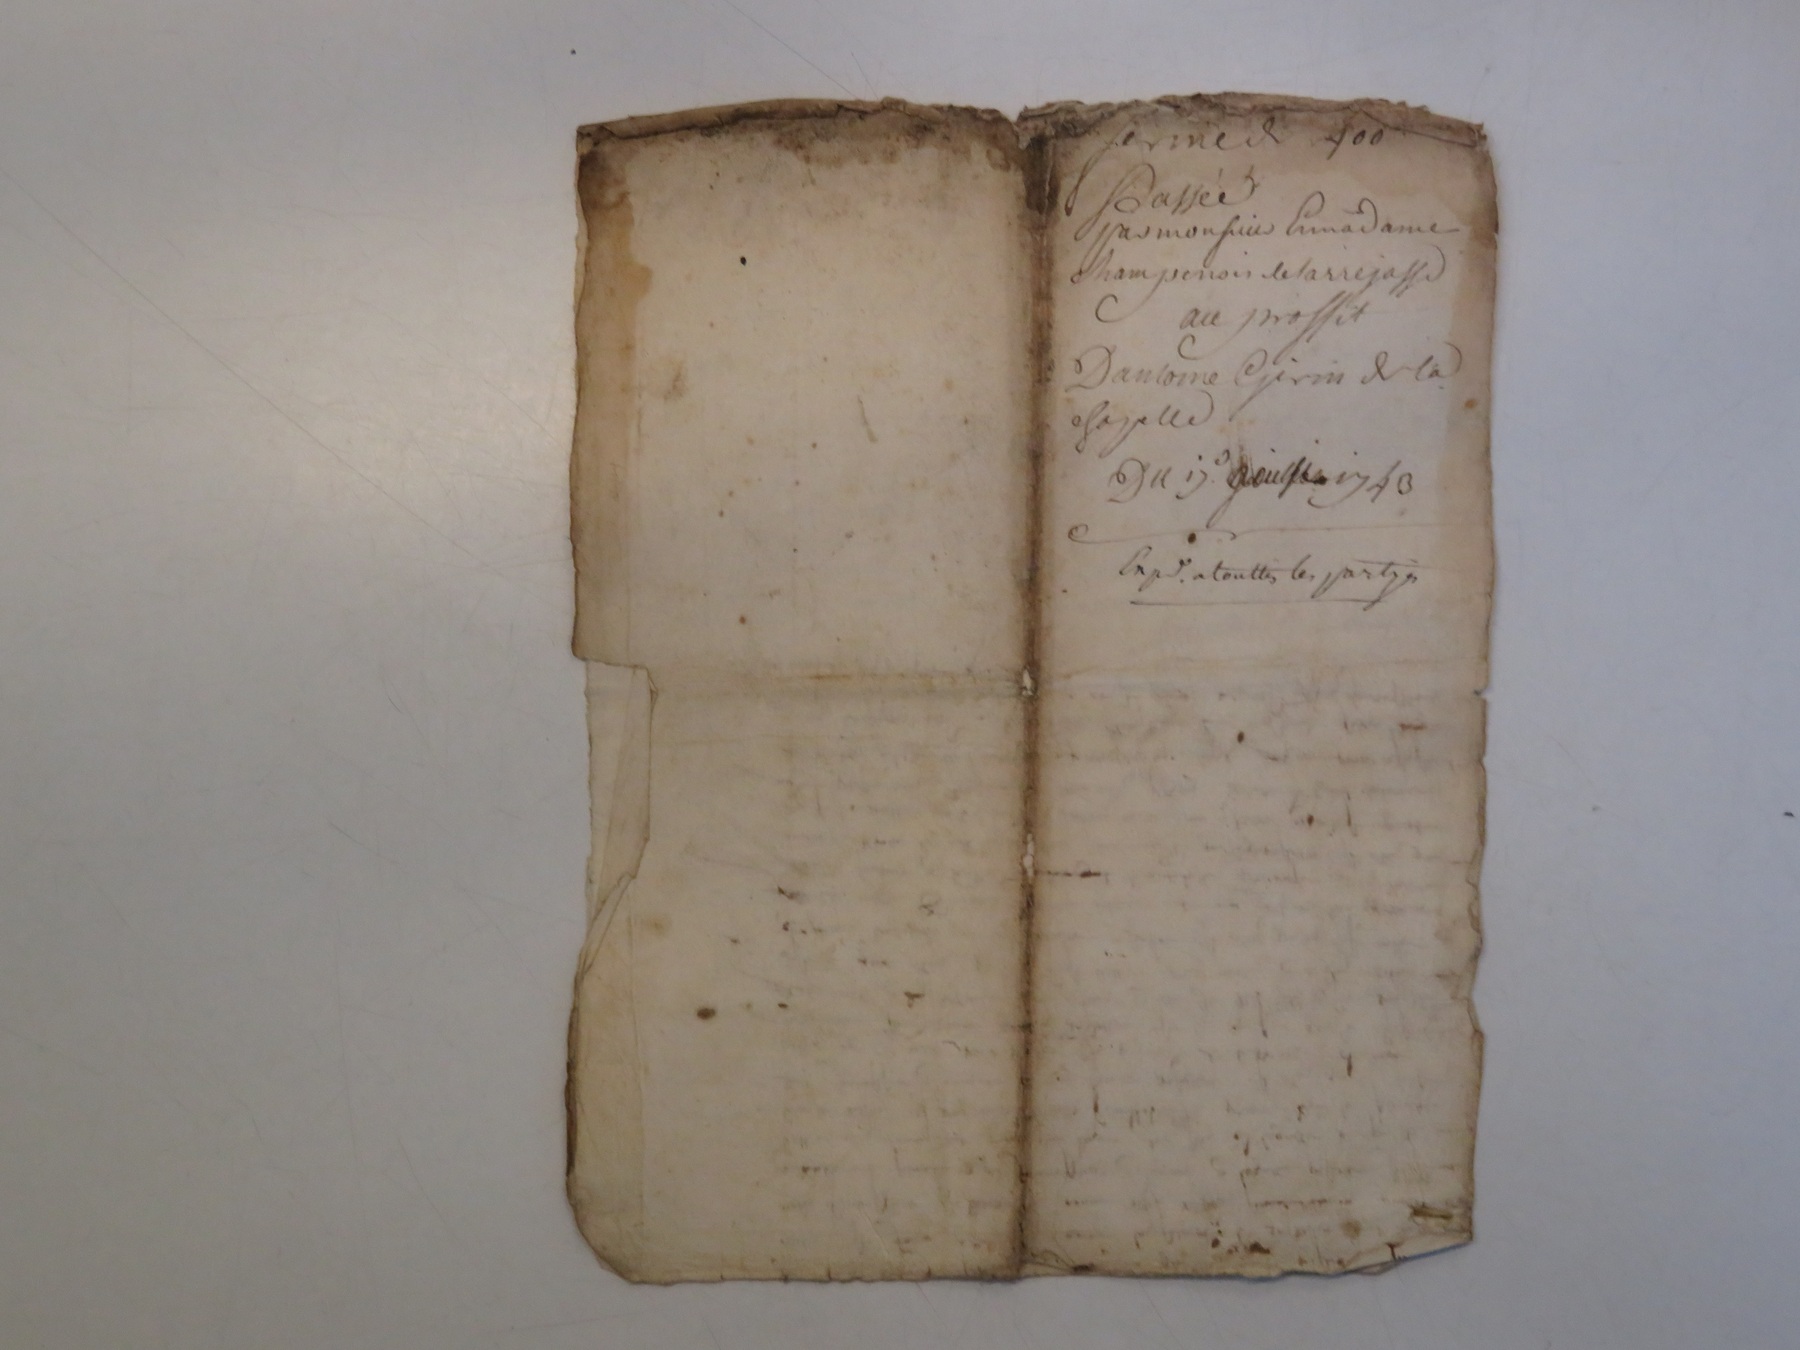 ferme de 400
Passée
par monsieur Et madame
Champenois de larrejasse
au proffit
Dantoine Gerin de la
chapelle
Du 17e 1743
Expé. a touttes les partyes